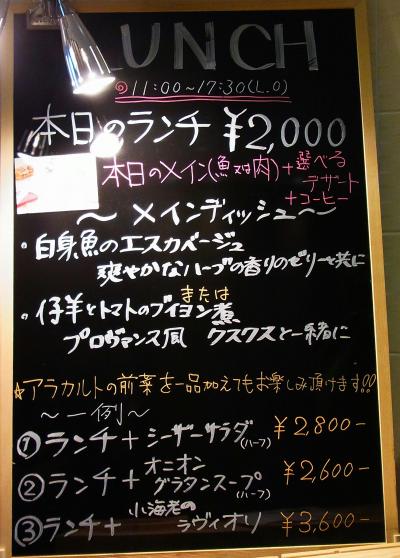 LUNCH
◎11:00~17:30(L.O)
本日のランチ ¥2,000
本日のメイン(魚又は肉)+選べる
デザート
+コーヒー
~メインディッシュ~
・白身魚のエスカベージュ
爽やかなハーブの香りのゼリーと共に
または
・仔羊とトマトのブイヨン煮
プロヴァンス風 クスクスと一緒に
☆アラカルトの前菜を一品加えてもお楽しみ頂けます!!
~一例~
①ランチ+シーザーサラダ(ハーフ) ¥2,800-
②ランチ+オニオングラタンスープ(ハーフ) ¥2,600-
③ランチ+小海老のラヴィオリ ¥3,600-